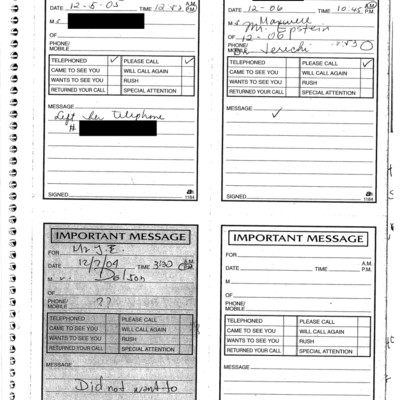 DATE 12-5-05 TIME 12:52 P.M.
M S
OF
PHONE/
MOBILE
TELEPHONED ✓ PLEASE CALL ✓
CAME TO SEE YOU WILL CALL AGAIN
WANTS TO SEE YOU RUSH
RETURNED YOUR CALL SPECIAL ATTENTION
MESSAGE
Left her telephone
#
SIGNED 1184
DATE 12-06 TIME 10:45 A.M. P.M.
M S Maxwell
Mr. Epstein
OF 12-06
PHONE/
MOBILE Dr.
TELEPHONED PLEASE CALL ✓
CAME TO SEE YOU WILL CALL AGAIN
WANTS TO SEE YOU RUSH
RETURNED YOUR CALL SPECIAL ATTENTION
MESSAGE
✓
SIGNED 1184
IMPORTANT MESSAGE
FOR Mr J.E.
DATE 12/7/04 TIME 3:30 A.M. P.M.
M
OF
PHONE/
MOBILE ??
TELEPHONED PLEASE CALL
CAME TO SEE YOU WILL CALL AGAIN
WANTS TO SEE YOU RUSH
RETURNED YOUR CALL SPECIAL ATTENTION
MESSAGE
Did not want to
IMPORTANT MESSAGE
FOR
DATE TIME A.M. P.M.
M
OF
PHONE/
MOBILE
TELEPHONED PLEASE CALL
CAME TO SEE YOU WILL CALL AGAIN
WANTS TO SEE YOU RUSH
RETURNED YOUR CALL SPECIAL ATTENTION
MESSAGE